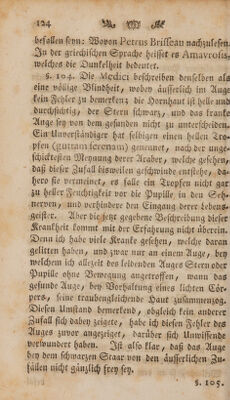 124
befallen seyn: Wovon Petrus Brisseau nachzulesen.
In der griechischen Sprache heisset es Amavrosis,
welches die Dunkelheit bedeutet.
§. 104. Die Medici beschreiben denselben als
eine völlige Blindheit, wobey äusserlich im Auge
kein Fehler zu bemerken: die Hornhaut ist helle und
durchsichtig, der Stern schwarz, und das kranke
Auge sey von dem gesunden nicht zu unterscheiden.
Ein Unverständiger hat selbigen einen hellen Tro-
pfen (guttam serenam) genennet, nach der unge-
schicktesten Meynung derer Araber, welche gesehen,
daß dieser Zufall bisweilen geschwinde entstehe, da-
hero sie vermeinet, es falle ein Tropfen nicht gar
zu heller Feuchtigkeit vor die Pupille in den Seh-
nerven, und verhindere den Eingang derer Lebens-
geister. Aber die jetzt gegebene Beschreibung dieser
Krankheit kommt mit der Erfahrung nicht überein.
Denn ich habe viele Kranke gesehen, welche daran
gelitten haben, und zwar nur an einem Auge, bey
welchem ich allezeit des leibenden Auges Stern oder
Pupille ohne Bewegung angetroffen, wann das
gesunde Auge, bey Vorhaltung eines lichten Cör-
pers, seine traubengleichende Haut zusammenzog.
Diesen Umstand bemerkend, obgleich kein anderer
Zufall sich dabey zeigte, hab ich diesen Fehler des
Auges zuvor angezeiget, darüber sich Unwissende
verwundert haben. Ist also klar, daß das Auge
bey dem schwarzen Staar von den äusserlichen Zu-
fällen nicht gänzlich frey sey.
§. 105.